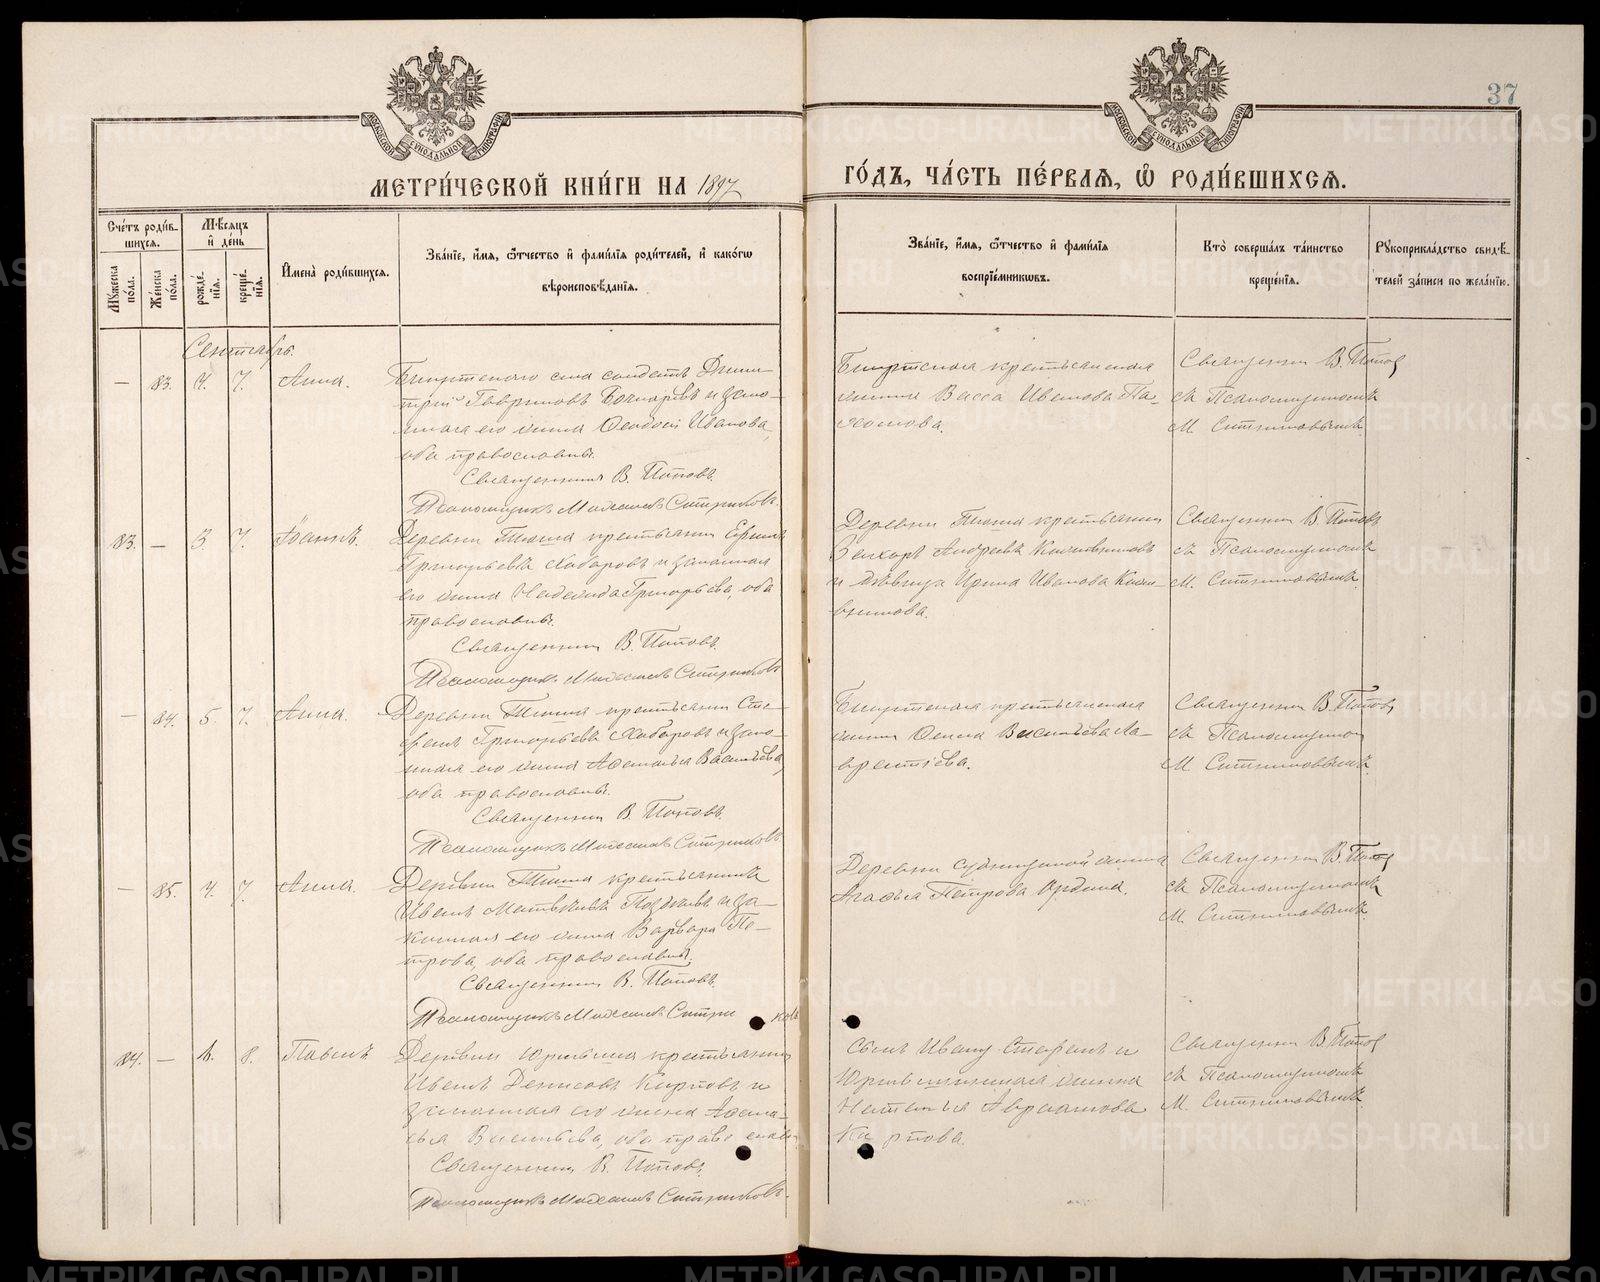 37
МОСКОВСКОЙ СУНОДАЛЬНОЙ ТИПОГРАФІИ
МОСКОВСКОЙ СУНОДАЛЬНОЙ ТИПОГРАФІИ
МЕТРИ́ЧЕСКОЙ КНИ́ГИ НА 1897
ГО́ДЪ, ЧА́СТЬ ПЕ́РВАЯ, Ѡ҆ РОДИ́ВШИХСЯ.
Сче́тъ роди́в-
шихся.
Мꙋ́жеска по́ла.
Же́нска по́ла.
Мѣ́сяцъ и҆ де́нь
рожде́-
нїя.
креще́-
нїя.
И҆мена̀ роди́вшихся.
Зва́нїе, и҆́мя, ѻ҆́тчество и҆ фами́лїя роди́телей, и҆ како́гѡ
вѣроисповѣ́данїя.
Зва́нїе, и҆́мя, ѻ҆́тчество и҆ фами́лїя
воспрїе́мникѡвъ.
Кто̀ соверша́лъ та́инство
креще́нїя.
Рꙋкоприкла́дство свидѣ́-
телей за́писи по жела́нїю.
Сентябрь.
— 83. 4. 7. Анна.
села солдатъ Дими-
трій Гавриловъ и зако-
нная его жена Ѳеодосія Иванова,
оба православные.
Священникъ В. Поповъ.
Псаломщикъ Ситниковъ.
крестьянская
жена Васса Иванова Па-
хомова.
Священникъ В. Поповъ
съ Псаломщикомъ
М. Ситниковымъ.
83. — 3. 7. Іоаннъ.
Деревни крестьянинъ Ефимъ
Григорьевъ Хабаровъ и законная
его жена Надежда Григорьева, оба
православные.
Священникъ В. Поповъ.
Псаломщикъ Ситниковъ.
Деревни крестьянинъ
Андреевъ
и дѣвица Ирина Иванова
Священникъ В. Поповъ
съ Псаломщикомъ
М. Ситниковымъ.
— 84. 5. 7. Анна.
Деревни крестьянинъ Сте-
фанъ Григорьевъ Хабаровъ и зако-
нная его жена Васильева,
оба православные.
Священникъ В. Поповъ.
Псаломщикъ Ситниковъ.
крестьянская
жена Васильева Ла-
врентіева.
Священникъ В. Поповъ
съ Псаломщикомъ
М. Ситниковымъ.
— 85. 4. 7. Анна.
Деревни крестьянинъ
Иванъ Матвѣевъ и за-
конная его жена Варвара Пе-
трова, оба православные.
Священникъ В. Поповъ.
Псаломщикъ Ситниковъ
Деревни жена
Петрова
Священникъ В. Поповъ
съ Псаломщикомъ
М. Ситниковымъ.
84. — 1. 8. Павелъ
Деревни крестьянинъ
Иванъ Денисовъ Карповъ и
законная его жена
Васильева, оба православ.
Священникъ В. Поповъ.
Псаломщикъ Ситниковъ.
Сынъ Стефанъ и
жена
Наталья Авраамова
Карпова.
Священникъ В. Поповъ
съ Псаломщикомъ
М. Ситниковымъ.
METRIKI.GASO-URAL.RU